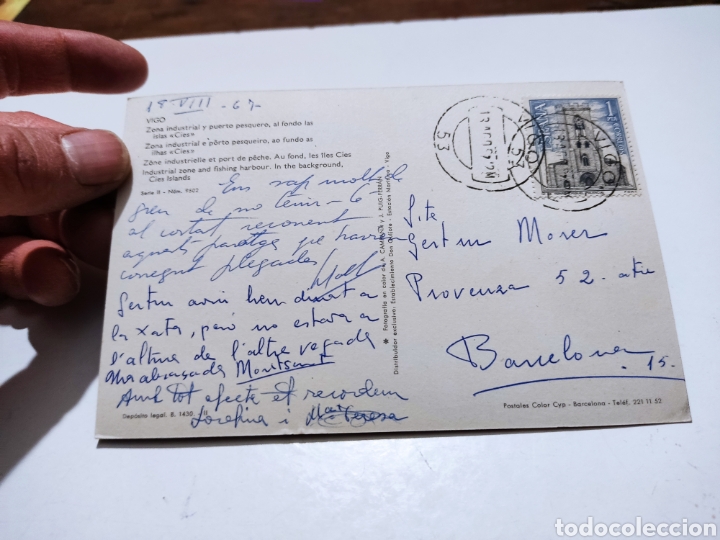 18-VIII-67-
VIGO
Zona industrial y puerto pesquero, al fondo las
islas «Cíes»
Zona industrial e pôrto pesqueiro, ao fundo as
ilhas «Cies»
Zône industrielle et port de pêche. Au fond, les îles Cies
Industrial zone and fishing harbour. In the background,
Cies Islands
Serie II - Núm. 9502
Ens sap molt de
greu de no tenir-te
al costat recorrent
aquests paratges que havíem
corregut plegades
Gertru avui hem dinat a
la xata, però no estava a
l'altura de l'altre vegada
Una abraçada Montserrat
Amb tot afecte et recorden
Josefina i Mª Teresa
Depósito legal. B. 1430
Fotografía en color de A. CAMPAÑÁ y J. PUIG-FERRÁN
Distribuidor exclusivo: Establecimiento Don Quijote - Estación Marítima - Vigo
VIGO
53
VIGO
1
Srta
Gertru Moner
Provenza 52. atre
Barcelona
15.
Postales Color Cyp - Barcelona - Teléf. 221 11 52
todocoleccion